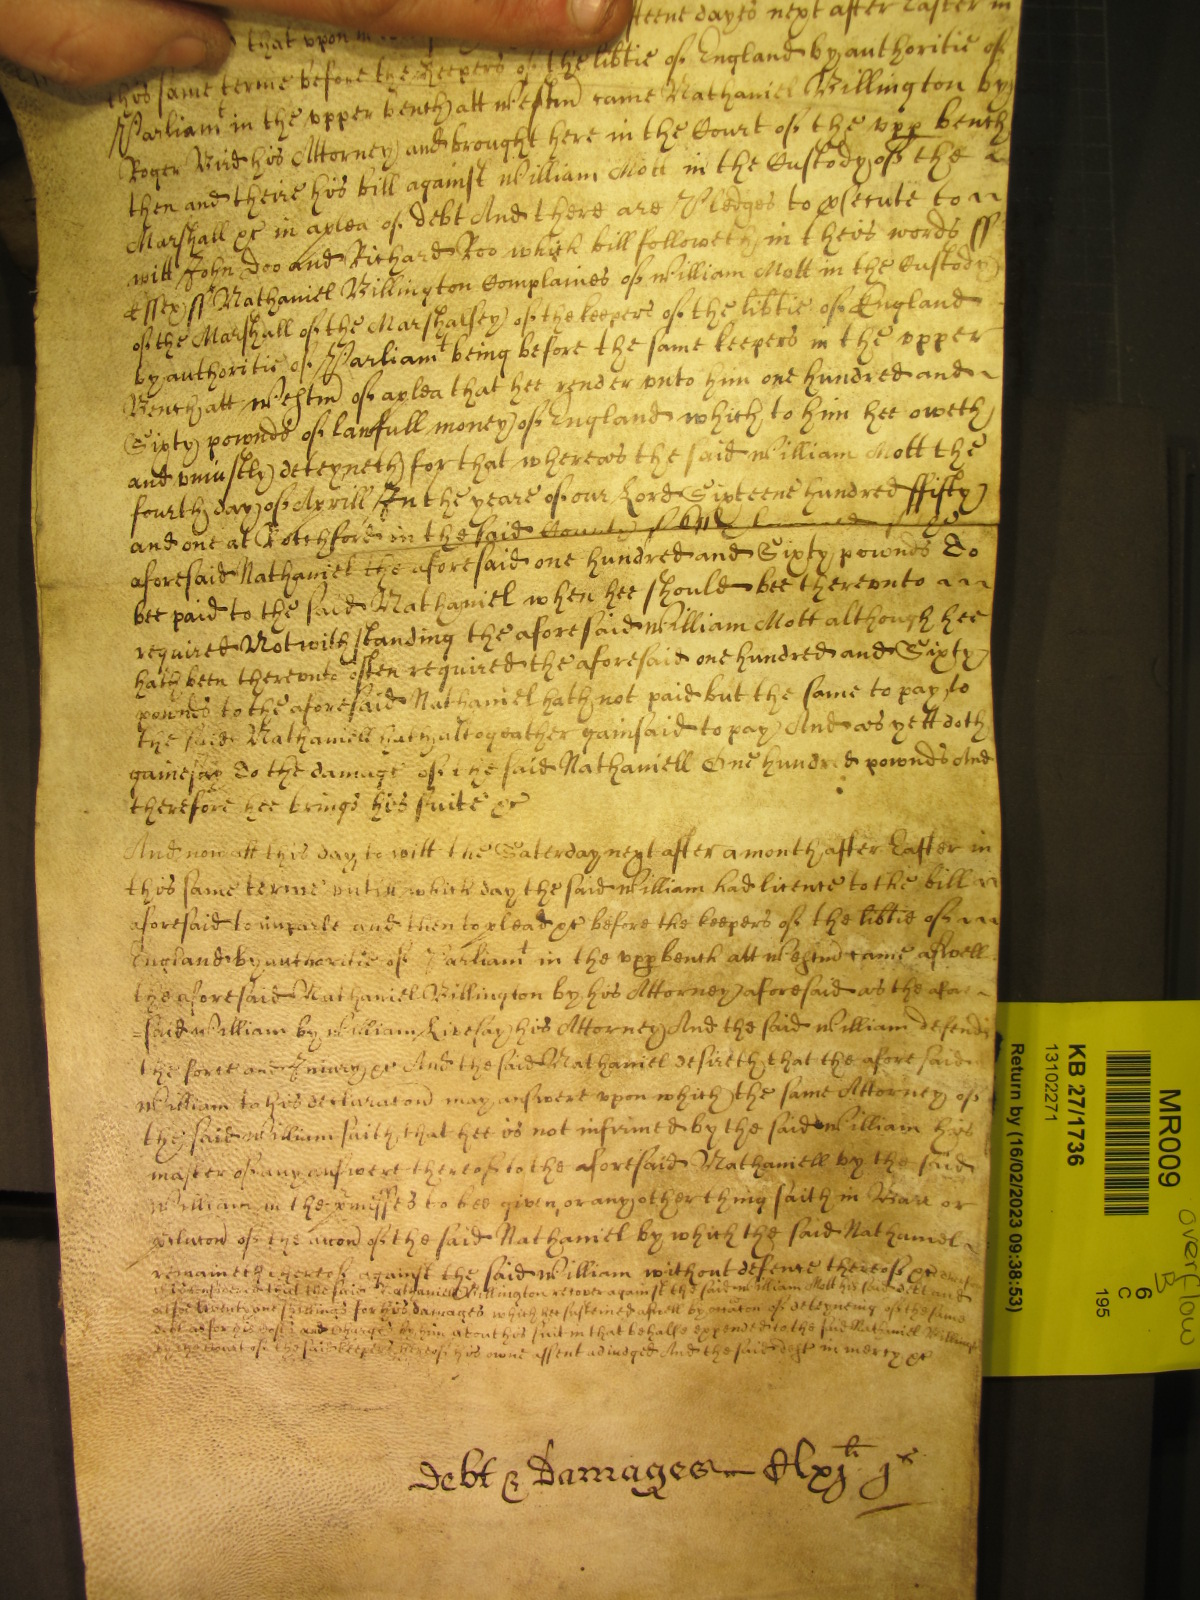 teene dayes next after Easter in
that upon
this same terme before the keepers of the libtie of England by authoritie of
Parliamt in the upper bench att Westm came Nathaniel Billington by
Roger Bird his Attorney and brought here in the Court of the upp bench
then and theire his bill against William Mott in the Custody of the
Marshall &c in a plea of debt And there are Pledges to psecute to
witt John Doo and Richard Roo which bill followeth in theis words ss
Essex ss Nathaniel Billington Complaines of William Mott in the Custody
of the Marshall of the Marshalsey of the keepers of the libtie of England
by authoritie of Parliamt being before the same keepers in the upper
Bench att Westm of a plea that hee render unto him one hundred and
Sixty pownds of lawfull money of England which to him hee oweth
and uniustly deteyneth for that whereas the said William Mott the
fourth day of Aprill In the yeare of our Lord Sixteene hundred ffifty
and one at Rotchford in the said County
aforesaid Nathaniel the aforesaid one hundred and Sixty pownds To
bee paid to the said Nathaniel when hee should bee thereunto
required Notwithstanding the aforesaid William Mott although hee
hath been thereunto often required the aforesaid one hundred and Sixty
pownds to the aforesaid Nathaniel hath not paid but the same to pay to
the said Nathaniell hath altogeather gainsaid to pay And as yett doth
gainesay To the damage of the said Nathaniell One hundred pownds And
therefore hee brings his suite &c
And now att this day to witt the Saterday next after a month after Easter in
this same terme untill which day the said William had licence to the bill
aforesaid to imparle and then to plead &c before the keepers of the libtie of
England by authoritie of Parliamt in the upp bench att Westm came aswell
the aforesaid Nathaniel Billington by his Attorney aforesaid as the afore
=said William by William Livesay his Attorney And the said William defends
the force and Iniury &c And the said Nathaniel desireth that the aforesaid
William to his declaracon may answere upon which the same Attorney of
the said William saith that hee is not informed by the said William his
master of any answere thereof to the aforesaid Nathaniell by the said
William in the pmisses to bee given or any other thing saith in Barr or
of the accon of the said Nathaniel by which the said Nathaniel
remaineth thereof against the said William without defence thereof &c
is considered that the said Nathaniel Billington recover against the said William Mott his said debt and
alsoe twenty one shillings for his damages which hee susteined aswell by occacon of deteyneing of the same
debt as for his costs and charges by him about his suit in that behalfe expended to the said Nathaniel Billington
by the Court of the said keepers hereof his owne assent adiudged And the said deft in mercy &c
Debt & Damages Clxjli js
MR009
KB 27/1736
13102271
Return by (16/02/2023 09:38:53)
6
C
195
overflow
B